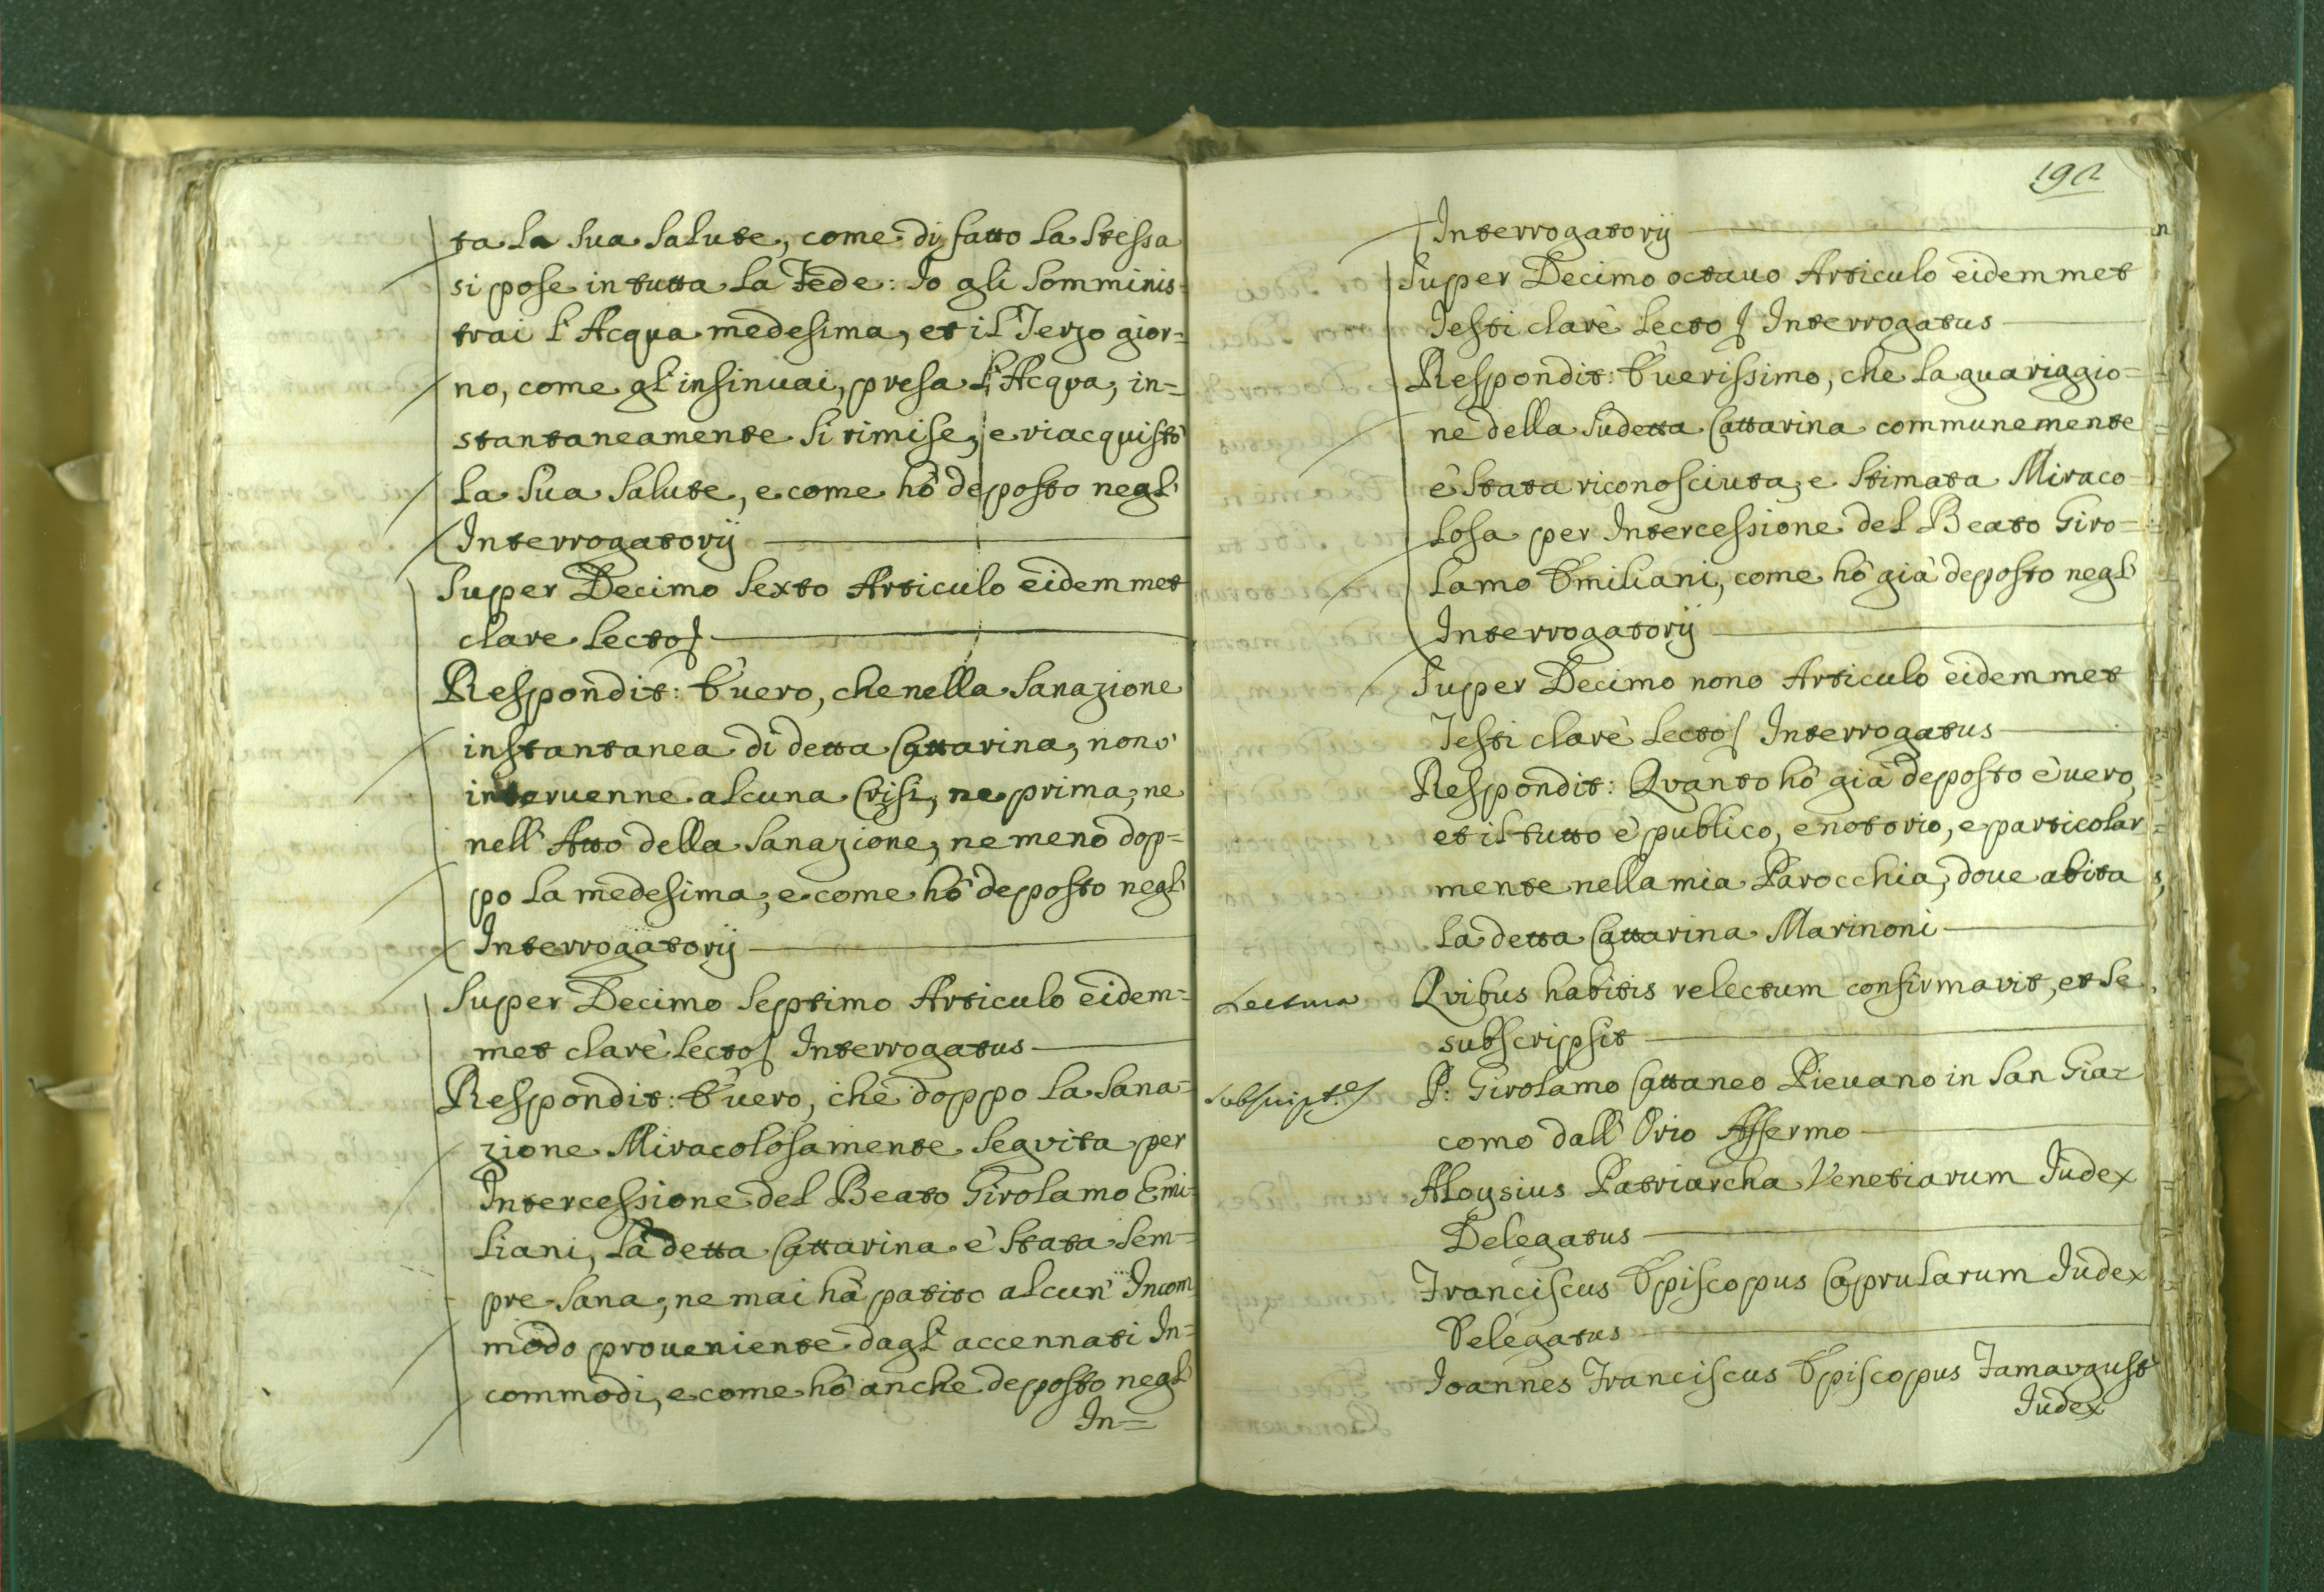 ta la sua salute, come di fatto la stessa
si pose in tutta la Fede: Io gli somminis-
trai l'Acqua medesima, et il Terzo gior=
no, come gl'insinuai, presa l'Acqua, in=
stantaneamente si rimise, e riacquistò
la sua salute, e come hò deposto negl'
Interrogatorij
Super Decimo Sexto Articulo eidemmet
clare lecto
Respondit: È uero, che nella sanazione
instantanea di detta Cattarina, non
interuenne alcuna Crisi, ne prima, ne
nell'Atto della sanazione, ne meno dop=
po la medesima, e come hò deposto negl'
Interrogatorij
Super Decimo Septimo Articulo eidem=
met clarè lecto Interrogatus
Respondit: È uero, che doppo la sana=
zione Miracolosamente seguita per
Intercessione del Beato Girolamo Emi-
liani, la detta Cattarina è stata sem=
pre sana, ne mai hà patito alcun' Incom
modo proueniente dagl'accennati In=
commodi, e come hò anche deposto negl'
In=
192
Interrogatorij
Super Decimo octauo Articulo eidemmet
Testi clarè lecto Interrogatus
Respondit: È uerissimo, che la guariggio=
ne della sudetta Cattarina communemente
è stata riconosciuta, e stimata Miraco-
losa per Intercessione del Beato Giro=
lamo Emiliani, come hò già deposto negl'
Interrogatorij
Super Decimo nono Articulo eidemmet
Testi clarè lecto Interrogatus
Respondit: Quanto hò già deposto è uero,
et il tutto è publico, e notorio, e particolar=
mente nella mia Parocchia, doue abita
la detta Cattarina Marinoni
Lectura Quibus habitis relectum confirmavit, et se
subscripsit
Subscript.° P: Girolamo Cattaneo Pieuano in San Gia=
como dall'Orio Affermo
Aloysius Patriarcha Venetiarum Iudex
Delegatus
Franciscus Episcopus Caprularum Iudex
Delegatus
Ioannes Franciscus Episcopus Famaugust
Iudex